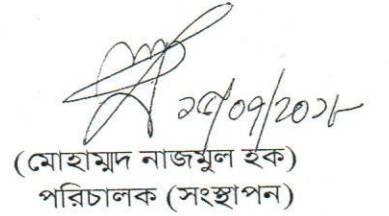 ২৫/০৭/২০১৮
(মোহাম্মদ নাজমুল হক)
পরিচালক (সংস্থাপন)